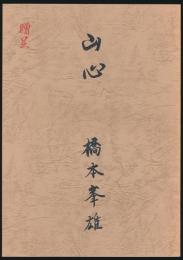 贈呈
山心
橋本峯雄